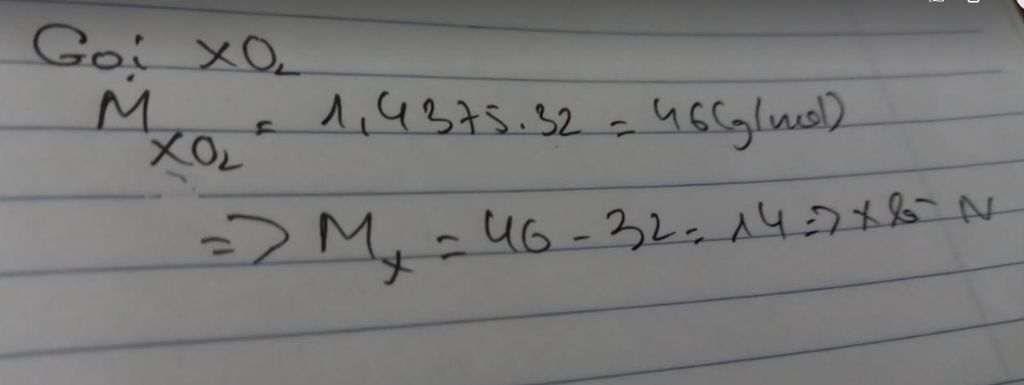 Gọi XO₂
M_XO₂ = 1,4375.32 = 46(g/mol)
=> M_X = 46 - 32 = 14 => X là N